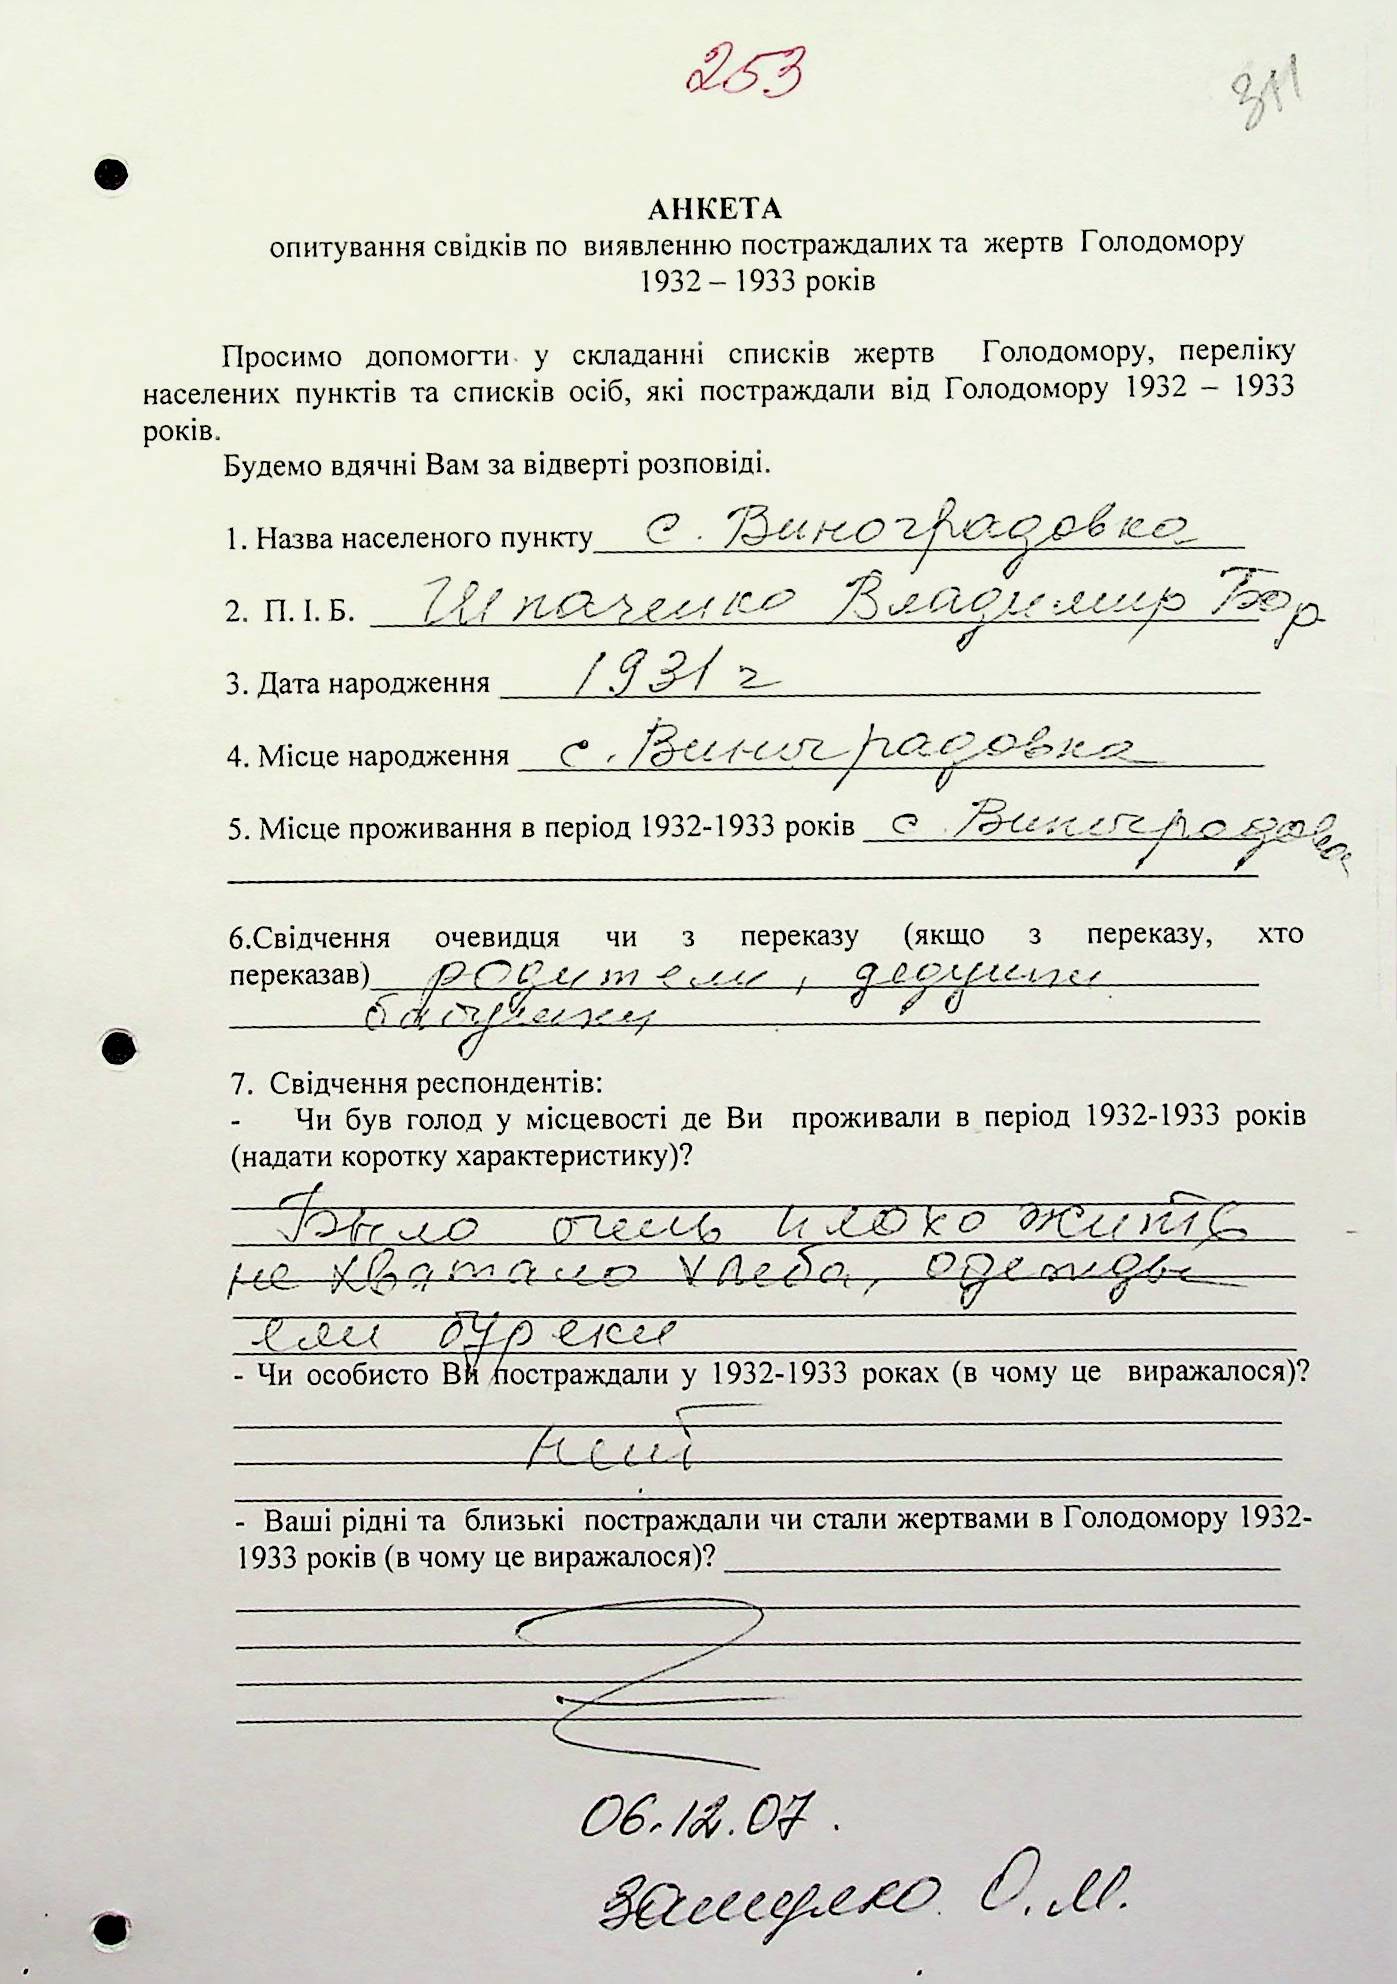 253
311
АНКЕТА
опитування свідків по виявленню постраждалих та жертв Голодомору
1932 – 1933 років
Просимо допомогти у складанні списків жертв Голодомору, переліку
населених пунктів та списків осіб, які постраждали від Голодомору 1932 – 1933
років.
Будемо вдячні Вам за відверті розповіді.
1. Назва населеного пункту с. Виноградовка
2. П. І. Б. Шпаченко Владимир Бор
3. Дата народження 1931 г
4. Місце народження с. Виноградовка
5. Місце проживання в період 1932-1933 років с Виноградовка
6.Свідчення очевидця чи з переказу (якщо з переказу, хто
переказав) родители, дедушки
бабушки
7. Свідчення респондентів:
- Чи був голод у місцевості де Ви проживали в період 1932-1933 років
(надати коротку характеристику)?
Было очень плохо жить
не хватало хлеба, одежды
ели буряки
- Чи особисто Ви постраждали у 1932-1933 роках (в чому це виражалося)?
нет
- Ваші рідні та близькі постраждали чи стали жертвами в Голодомору 1932-
1933 років (в чому це виражалося)?
06.12.07.
О.М.